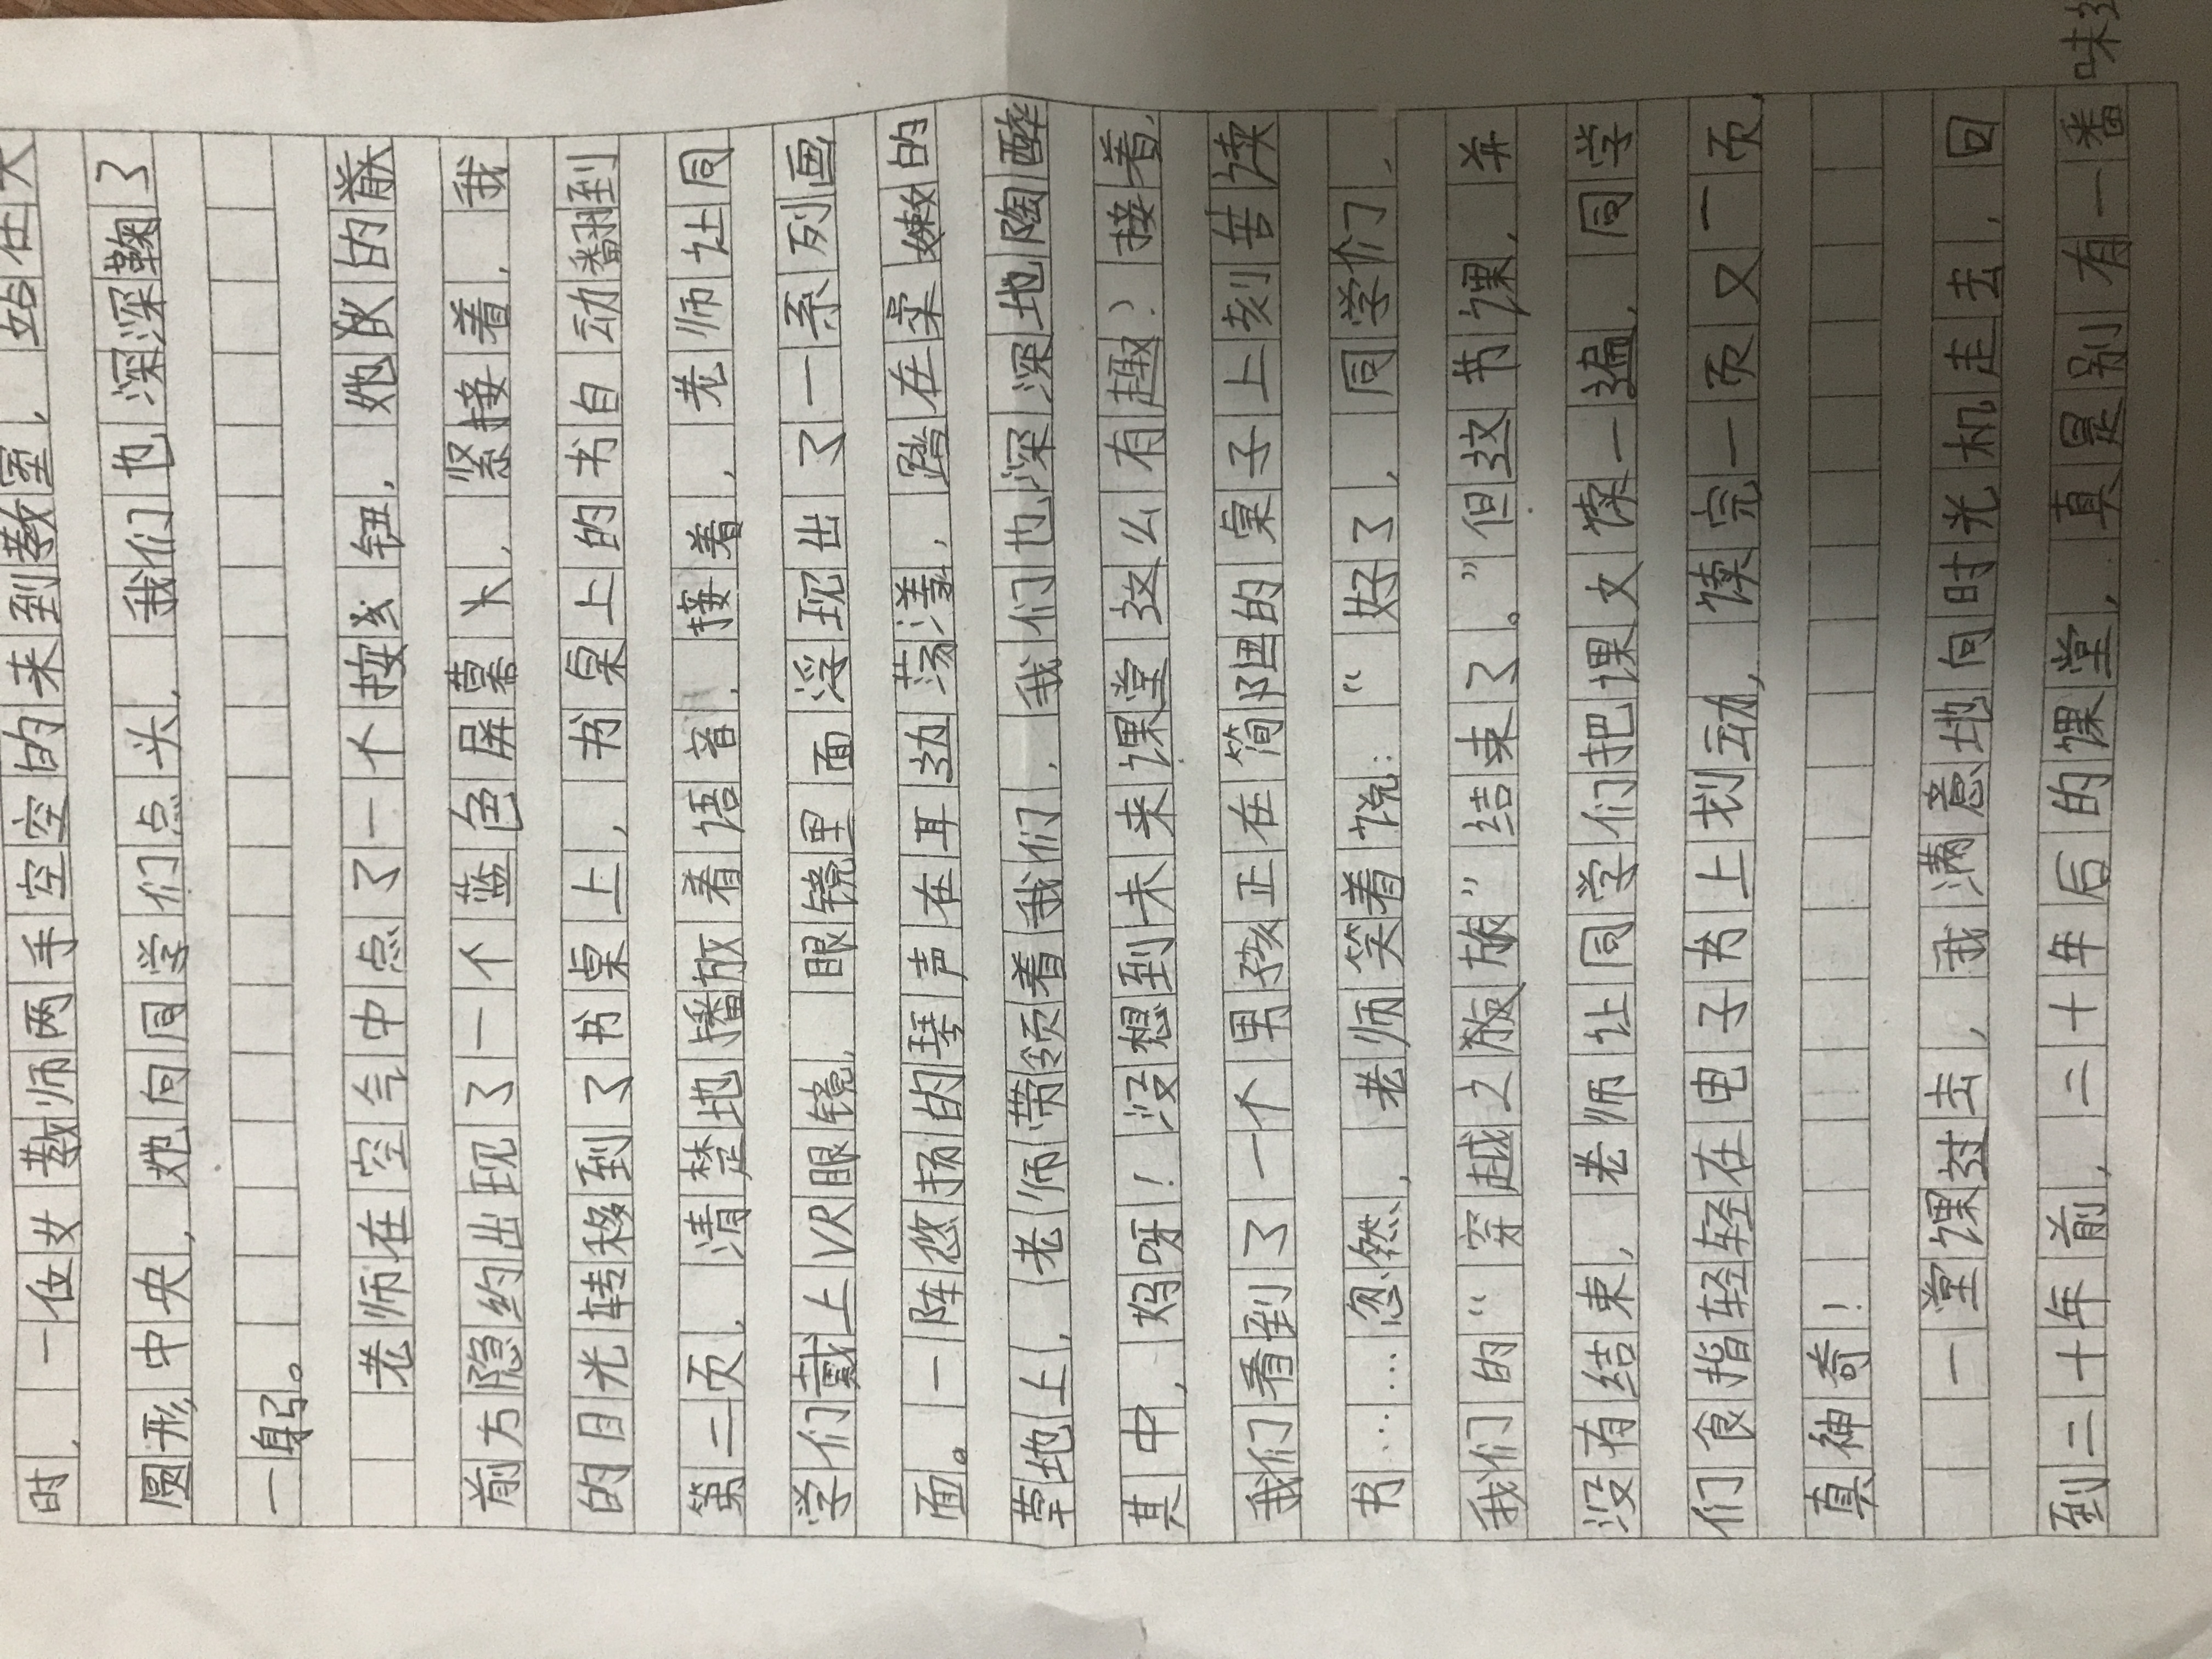 时，一位女教师两手空空的来到教室，站在大
圆形中央，她向同学们点头，我们也深深鞠了
一躬。
老师在空气中点了一个按钮，她的前
前方隐约出现了一个蓝色屏幕，紧接着，我
的目光转移到了书桌上，书桌上的书自动翻到
第二页，清楚地播放着语音，接着，老师让同
学们戴上VR眼镜，眼镜里面浮现出了一系列画
面。一阵悠扬的琴声在耳边荡漾，踏在柔嫩的
草地上，老师带领着我们，我们也深深地陶醉
其中，妈呀！没想到未来课堂这么有趣？接着，
我们看到了一个男孩正在简陋的桌子上刻苦读
书……忽然，老师笑着说：“好了，同学们，
我们的“穿越之旅”结束了。”但这节课，并
没有结束，老师让同学们把课文读一遍，同学
们食指轻轻在电子书上划动，读完一页又一页，
真神奇！
一堂课过去，我满意地向时光机走去，回
到二十年前，二十年后的课堂，真是别有一番
味